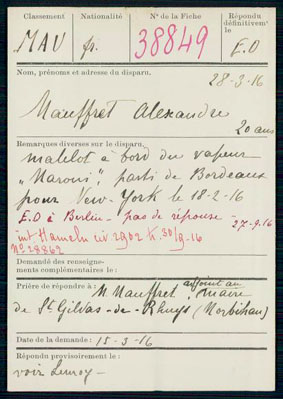 Classement
Nationalité
N° de la Fiche
Répondu
définitivemt
le
MAU
fr.
38849
E.O
Nom, prénoms et adresse du disparu.
28-3-16
Mauffret Alexandre
20 ans
Remarques diverses sur le disparu.
matelot à bord du vapeur
„Maroni", parti de Bordeaux
pour New-York le 18-2-16
E.O à Berlin - pas de réponse - 27-9-16
int Hameln civ 2902 K. 30/9-16
No 28862
Demandé des renseigne-
ments complémentaires le :
Prière de répondre à :
M. Mauffret, adjoint au maire
de St Gildas-de-Rhuys (Morbihan)
Date de la demande : 15-3-16
Répondu provisoirement le :
voir Lemoy -